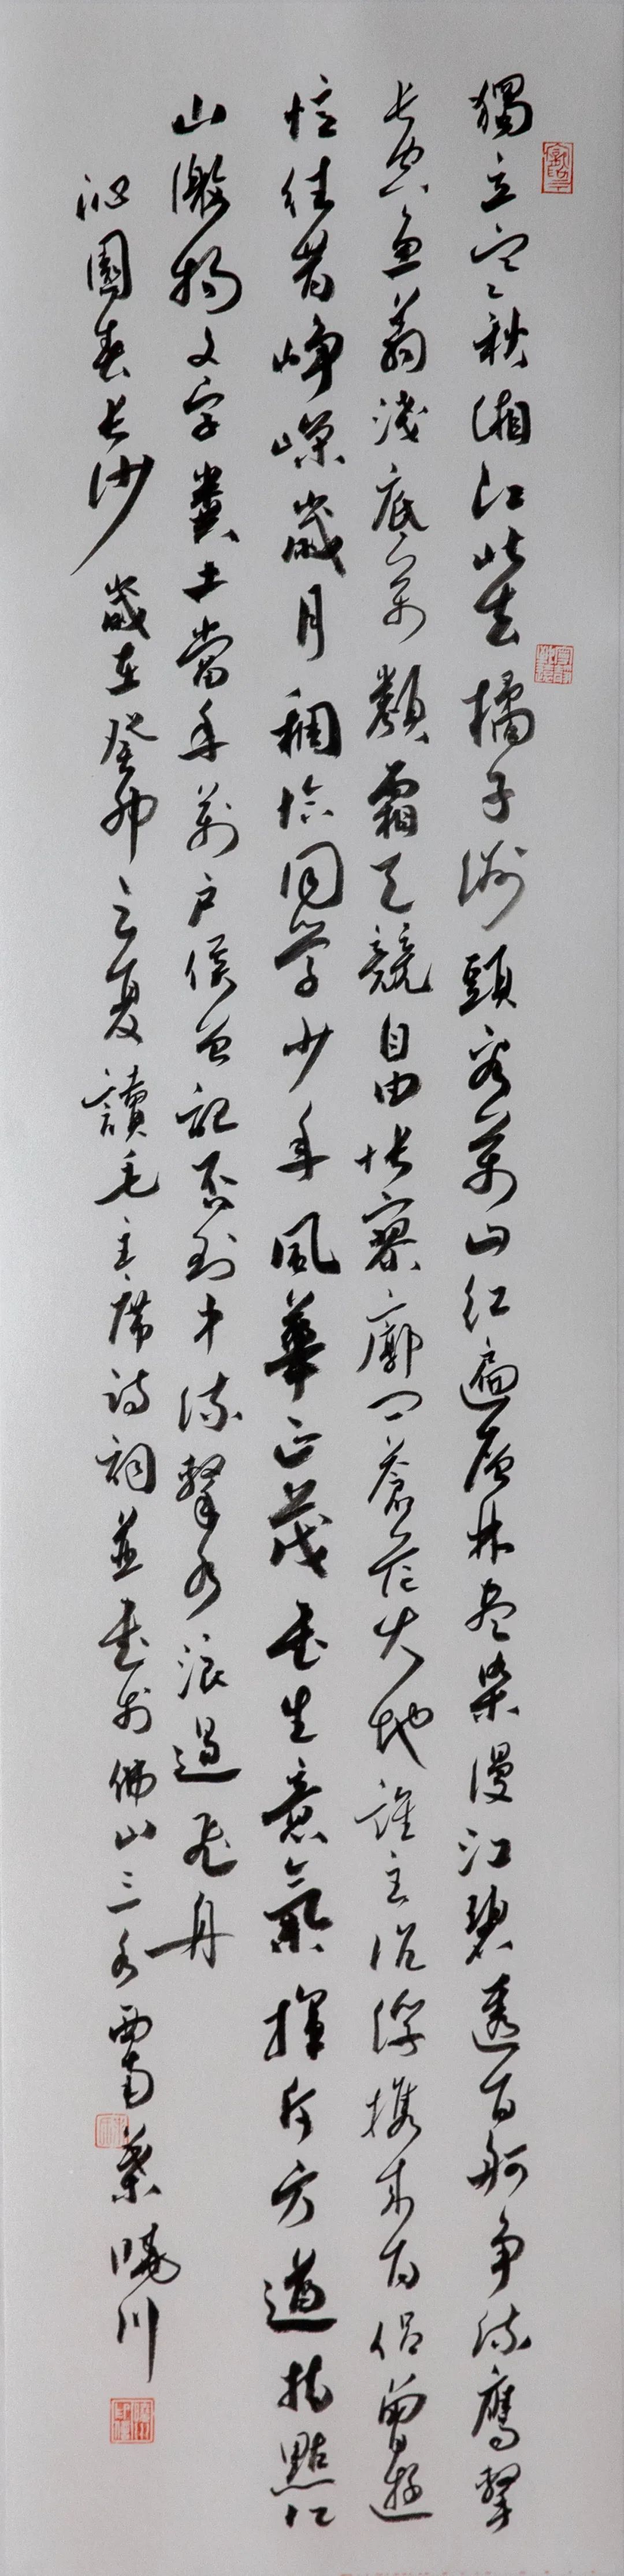 獨立寒秋湘江北去橘子洲頭看萬山红遍层林尽染漫江碧透百舸争流鷹擊
長空魚翔淺底萬類霜天競自由悵寥廓問蒼茫大地誰主沉浮攜来百侣曾遊
憶往昔崢嶸歲月稠恰同學少年風華正茂書生意氣揮斥方遒指點江
山激揚文字糞土當年萬户侯曾記否到中流擊水浪遏飛舟
沁園春長沙 歲在癸卯之夏讀毛主席詩詞並書於佛山三水西南葉曉川